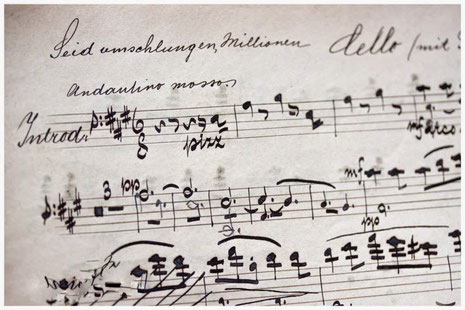 Seid umschlungen, Millionen Cello (mit
Andantino mosso.
Introd. 6 8 pizz arco
3 pp mf
pp